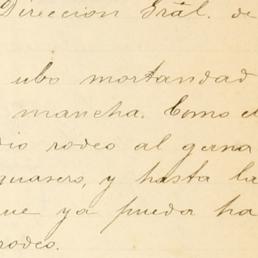 Direccion Gräl. de
ubo mortandad
mancha. Como e
dio rodeo al gana
guasero, y hasta la
que ya pueda ha
rodeo.